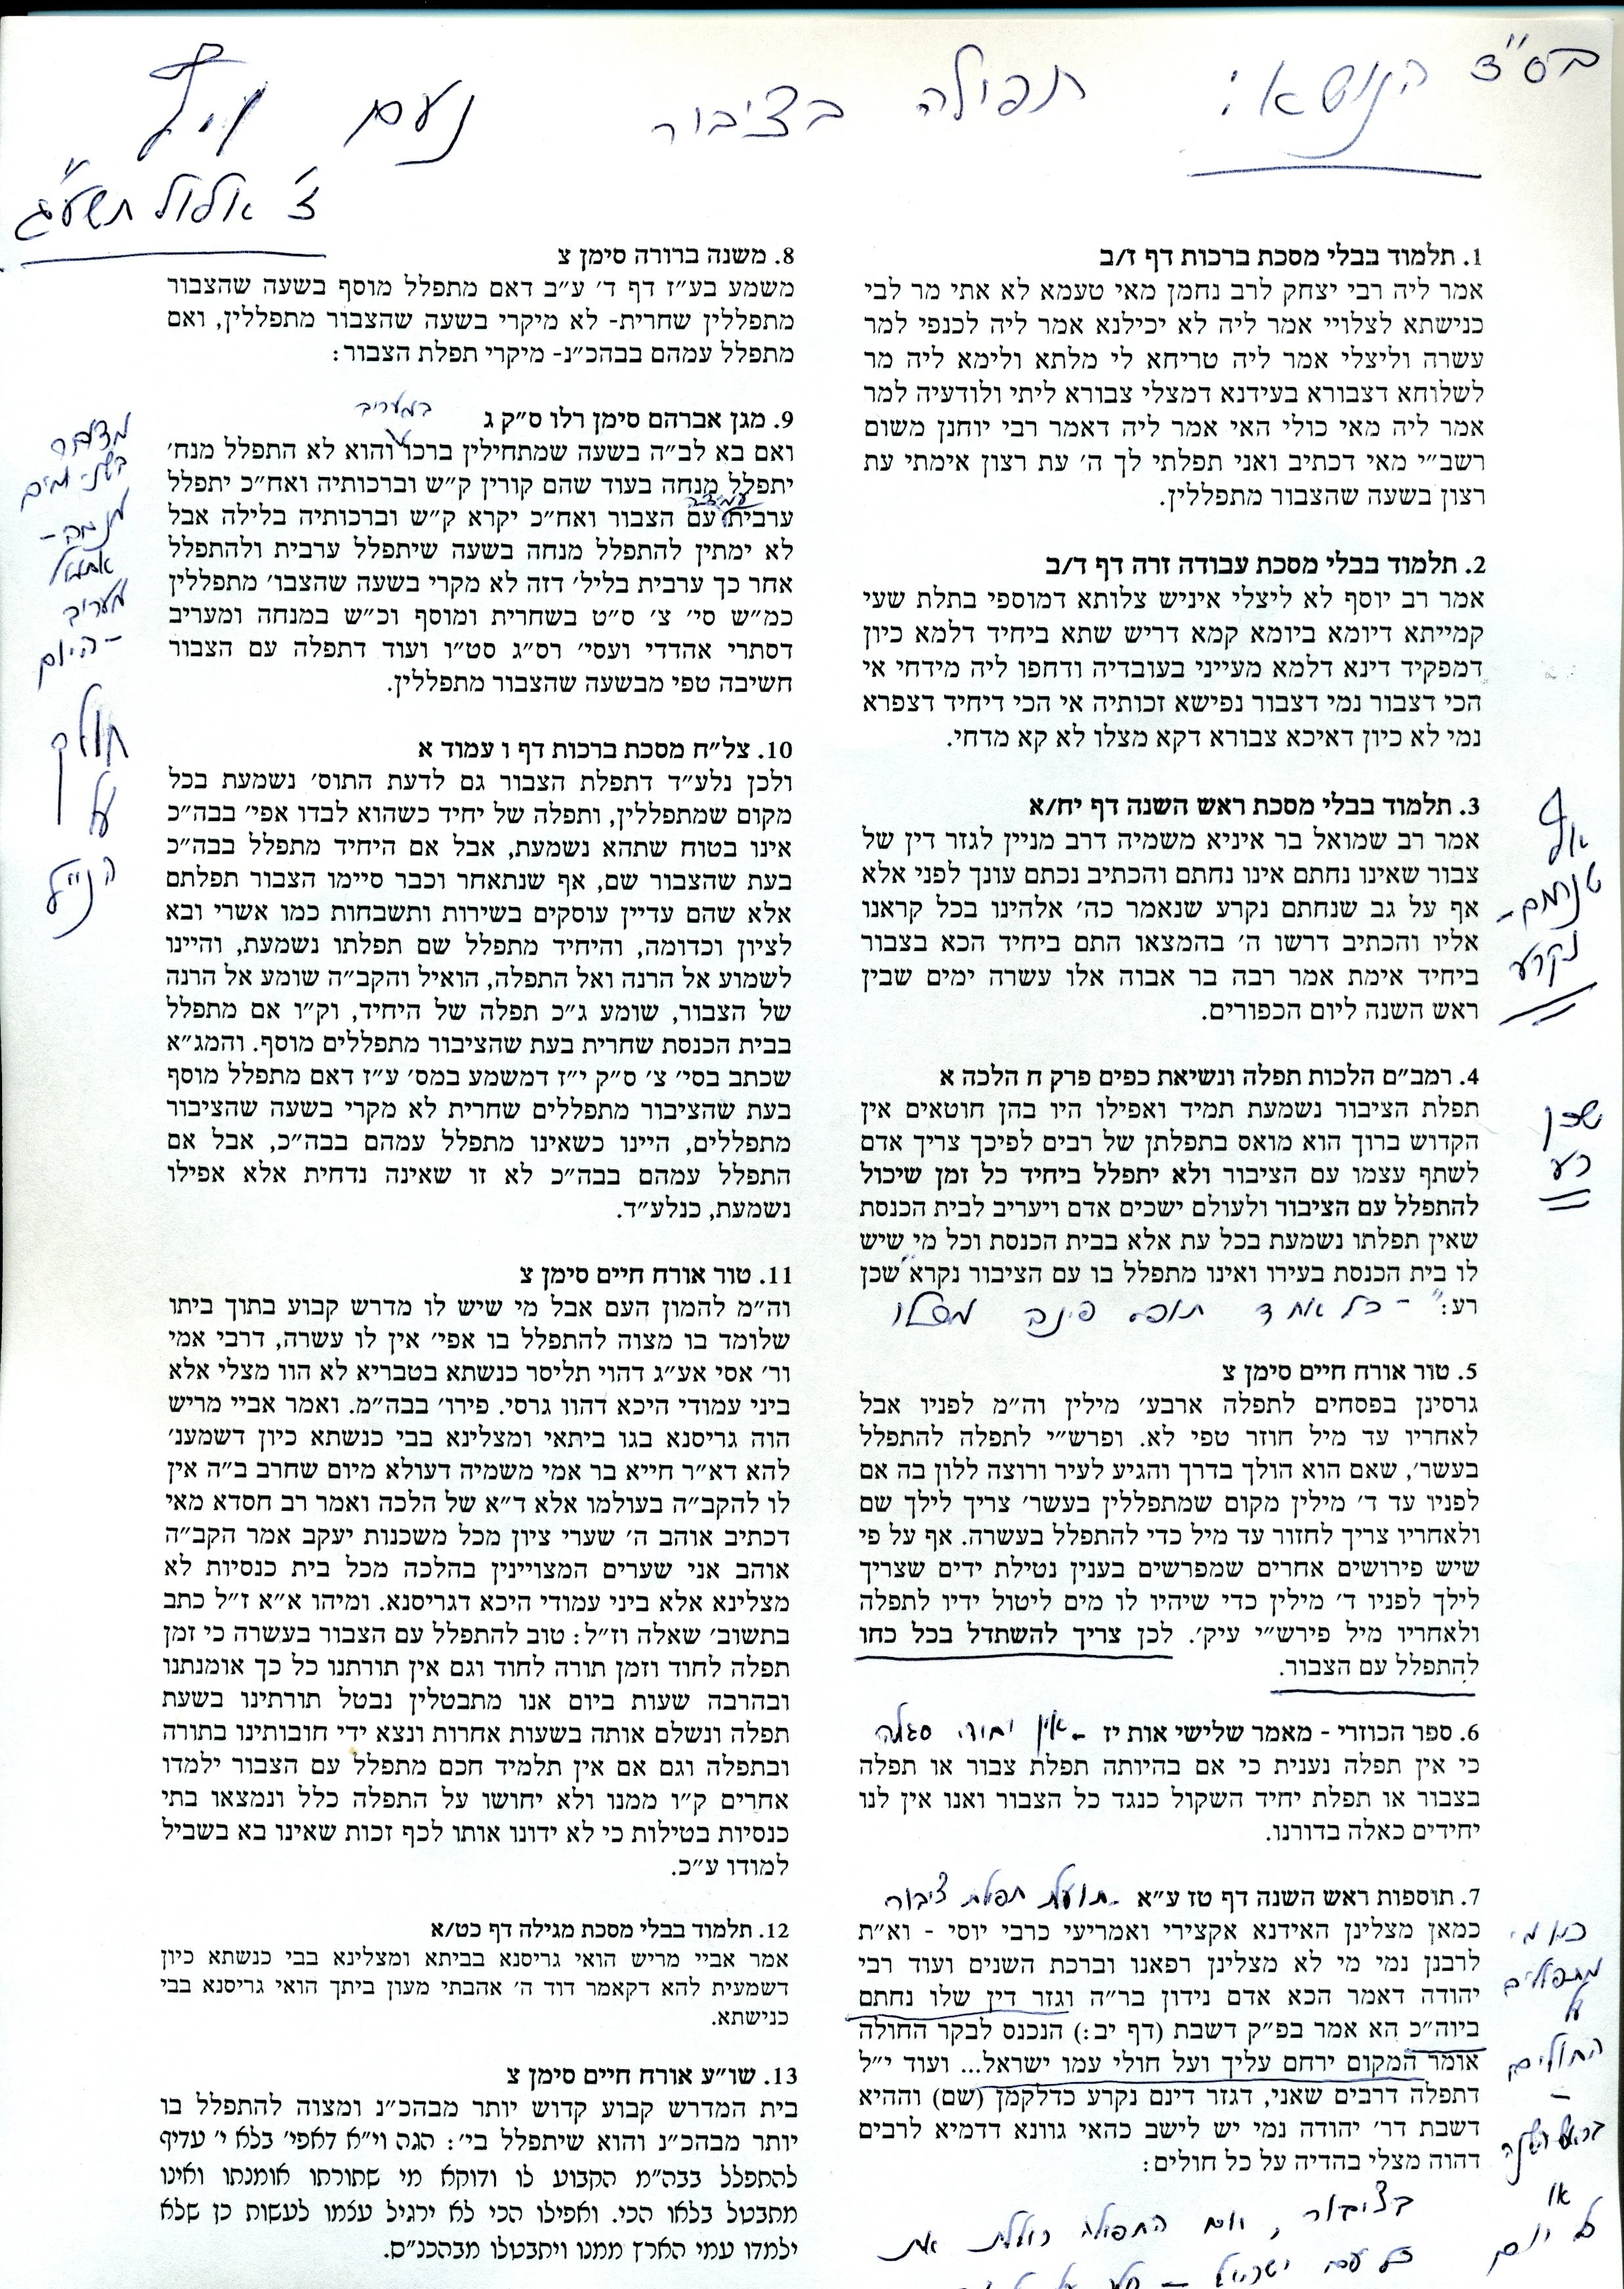 בס"ד
הנושא: תפילה בציבור
נעם
ז' אלול תשע"ג
1. תלמוד בבלי מסכת ברכות דף ז/ב
אמר ליה רבי יצחק לרב נחמן מאי טעמא לא אתי מר לבי
כנישתא לצלויי אמר ליה לא יכילנא אמר ליה לכנפי למר
עשרה וליצלי אמר ליה טריחא לי מלתא ולימא ליה מר
לשלוחא דצבורא בעידנא דמצלי צבורא ליתי ולודעיה למר
אמר ליה מאי כולי האי אמר ליה דאמר רבי יוחנן משום
רשב״י מאי דכתיב ואני תפלתי לך ה׳ עת רצון אימתי עת
רצון בשעה שהצבור מתפללין.
2. תלמוד בבלי מסכת עבודה זרה דף ד/ב
אמר רב יוסף לא ליצלי איניש צלותא דמוספי בתלת שעי
קמייתא דיומא ביומא קמא דריש שתא ביחיד דלמא כיון
דמפקיד דינא דלמא מעייני בעובדיה ודחפו ליה מידחי אי
הכי דצבור נמי דצבור נפישא זכותיה אי הכי דיחיד דצפרא
נמי לא כיון דאיכא צבורא דקא מצלו לא קא מדחי.
3. תלמוד בבלי מסכת ראש השנה דף יח/א
אמר רב שמואל בר איניא משמיה דרב מניין לגזר דין של
צבור שאינו נחתם אינו נחתם והכתיב נכתם עונך לפני אלא
אף על גב שנחתם נקרע שנאמר כה׳ אלהינו בכל קראנו
אליו והכתיב דרשו ה׳ בהמצאו התם ביחיד הכא בצבור
ביחיד אימת אמר רבה בר אבוה אלו עשרה ימים שבין
ראש השנה ליום הכפורים.
אף
שנחתם-
נקרע
4. רמב״ם הלכות תפלה ונשיאת כפים פרק ח הלכה א
תפלת הציבור נשמעת תמיד ואפילו היו בהן חוטאים אין
הקדוש ברוך הוא מואס בתפלתן של רבים לפיכך צריך אדם
לשתף עצמו עם הציבור ולא יתפלל ביחיד כל זמן שיכול
להתפלל עם הציבור ולעולם ישכים אדם ויעריב לבית הכנסת
שאין תפלתו נשמעת בכל עת אלא בבית הכנסת וכל מי שיש
לו בית הכנסת בעירו ואינו מתפלל בו עם הציבור נקרא "שכן
רע": - כל אחד תופס פינה משלו
שכן
רע
5. טור אורח חיים סימן צ
גרסינן בפסחים לתפלה ארבע׳ מילין וה״מ לפניו אבל
לאחריו עד מיל חוזר טפי לא. ופרש״י לתפלה להתפלל
בעשר׳, שאם הוא הולך בדרך והגיע לעיר ורוצה ללון בה אם
לפניו עד ד׳ מילין מקום שמתפללין בעשר׳ צריך לילך שם
ולאחריו צריך לחזור עד מיל כדי להתפלל בעשרה. אף על פי
שיש פירושים אחרים שמפרשים בענין נטילת ידים שצריך
לילך לפניו ד׳ מילין כדי שיהיו לו מים ליטול ידיו לתפלה
ולאחריו מיל פירש״י עיק׳. לכן צריך להשתדל בכל כחו
להתפלל עם הצבור.
6. ספר הכוזרי - מאמר שלישי אות יז - אין יחידי סגולה
כי אין תפלה נענית כי אם בהיותה תפלת צבור או תפלה
בצבור או תפלת יחיד השקול כנגד כל הצבור ואנו אין לנו
יחידים כאלה בדורנו.
7. תוספות ראש השנה דף טז ע״א - תועלת תפלת ציבור
כמאן מצלינן האידנא אקצירי ואמריעי כרבי יוסי - וא״ת
לרבנן נמי מי לא מצלינן רפאנו וברכת השנים ועוד רבי
יהודה דאמר הכא אדם נידון בר״ה וגזר דין שלו נחתם
ביוה״כ הא אמר בפ״ק דשבת (דף יב:) הנכנס לבקר החולה
אומר המקום ירחם עליך ועל חולי עמו ישראל... ועוד י״ל
דתפלה דרבים שאני, דגזר דינם נקרע כדלקמן (שם) וההיא
דשבת דר׳ יהודה נמי יש לישב כהאי גוונא דדמיא לרבים
דהוה מצלי בהדיה על כל חולים:
כמו מי
מתפללים
על
החולים
-
בראש השנה
או
כל יום
בציבור, התפילה כוללת את
כל עם ישראל -
8. משנה ברורה סימן צ
משמע בע״ז דף ד׳ ע״ב דאם מתפלל מוסף בשעה שהצבור
מתפללין שחרית- לא מיקרי בשעה שהצבור מתפללין, ואם
מתפלל עמהם בבהכ״נ- מיקרי תפלת הצבור:
9. מגן אברהם סימן רלו ס״ק ג
במעריב
ואם בא לב״ה בשעה שמתחילין ברכו והוא לא התפלל מנח׳
יתפלל מנחה בעוד שהם קורין ק״ש וברכותיה ואח״כ יתפלל
עמידה
ערבית עם הצבור ואח״כ יקרא ק״ש וברכותיה בלילה אבל
לא ימתין להתפלל מנחה בשעה שיתפלל ערבית ולהתפלל
אחר כך ערבית בליל׳ דזה לא מקרי בשעה שהצבו׳ מתפללין
כמ״ש סי׳ צ׳ ס״ט בשחרית ומוסף וכ״ש במנחה ומעריב
דסתרי אהדדי ועסי׳ רס״ג סט״ו ועוד דתפלה עם הצבור
חשיבה טפי מבשעה שהצבור מתפללין.
מדובר
בשני ימים
מנחה-
אתמול
מעריב
-היום
חולק
על
הנ"ל
10. צל״ח מסכת ברכות דף ו עמוד א
ולכן נלע״ד דתפלת הצבור גם לדעת התוס׳ נשמעת בכל
מקום שמתפללין, ותפלה של יחיד כשהוא לבדו אפי׳ בבה״כ
אינו בטוח שתהא נשמעת, אבל אם היחיד מתפלל בבה״כ
בעת שהצבור שם, אף שנתאחר וכבר סיימו הצבור תפלתם
אלא שהם עדיין עוסקים בשירות ותשבחות כמו אשרי ובא
לציון וכדומה, והיחיד מתפלל שם תפלתו נשמעת, והיינו
לשמוע אל הרנה ואל התפלה, הואיל והקב״ה שומע אל הרנה
של הצבור, שומע ג״כ תפלה של היחיד, וק״ו אם מתפלל
בבית הכנסת שחרית בעת שהציבור מתפללים מוסף. והמג״א
שכתב בסי׳ צ׳ ס״ק י״ז דמשמע במס׳ ע״ז דאם מתפלל מוסף
בעת שהציבור מתפללים שחרית לא מקרי בשעה שהציבור
מתפללים, היינו כשאינו מתפלל עמהם בבה״כ, אבל אם
התפלל עמהם בבה״כ לא זו שאינה נדחית אלא אפילו
נשמעת, כנלע״ד.
11. טור אורח חיים סימן צ
וה״מ להמון העם אבל מי שיש לו מדרש קבוע בתוך ביתו
שלומד בו מצוה להתפלל בו אפי׳ אין לו עשרה, דרבי אמי
ור׳ אסי אע״ג דהוי תליסר כנשתא בטבריא לא הוו מצלי אלא
ביני עמודי היכא דהוו גרסי. פירו׳ בבה״מ. ואמר אביי מריש
הוה גריסנא בגו ביתאי ומצלינא בבי כנשתא כיון דשמענ׳
להא דא״ר חייא בר אמי משמיה דעולא מיום שחרב ב״ה אין
לו להקב״ה בעולמו אלא ד״א של הלכה ואמר רב חסדא מאי
דכתיב אוהב ה׳ שערי ציון מכל משכנות יעקב אמר הקב״ה
אוהב אני שערים המצויינין בהלכה מכל בית כנסיות לא
מצלינא אלא ביני עמודי היכא דגריסנא. ומיהו א״א ז״ל כתב
בתשוב׳ שאלה וז״ל: טוב להתפלל עם הצבור בעשרה כי זמן
תפלה לחוד וזמן תורה לחוד וגם אין תורתנו כל כך אומנתנו
ובהרבה שעות ביום אנו מתבטלין נבטל תורתינו בשעת
תפלה ונשלם אותה בשעות אחרות ונצא ידי חובותינו בתורה
ובתפלה וגם אם אין תלמיד חכם מתפלל עם הצבור ילמדו
אחרים ק״ו ממנו ולא יחושו על התפלה כלל ונמצאו בתי
כנסיות בטילות כי לא ידונו אותו לכף זכות שאינו בא בשביל
למודו ע״כ.
12. תלמוד בבלי מסכת מגילה דף כט/א
אמר אביי מריש הואי גריסנא בביתא ומצלינא בבי כנשתא כיון
דשמעית להא דקאמר דוד ה׳ אהבתי מעון ביתך הואי גריסנא בבי
כנישתא.
13. שו״ע אורח חיים סימן צ
בית המדרש קבוע קדוש יותר מבהכ״נ ומצוה להתפלל בו
יותר מבהכ״נ והוא שיתפלל בי׳: הגה וי״א דאפי׳ בלא י׳ עדיף
להתפלל בבה״מ הקבוע לו ודוקא מי שתורתו אומנתו ואינו
מתבטל בלאו הכי. ואפילו הכי לא ירגיל עצמו לעשות כן שלא
ילמדו עמי הארץ ממנו ויתבטלו מבהכנ״ס.